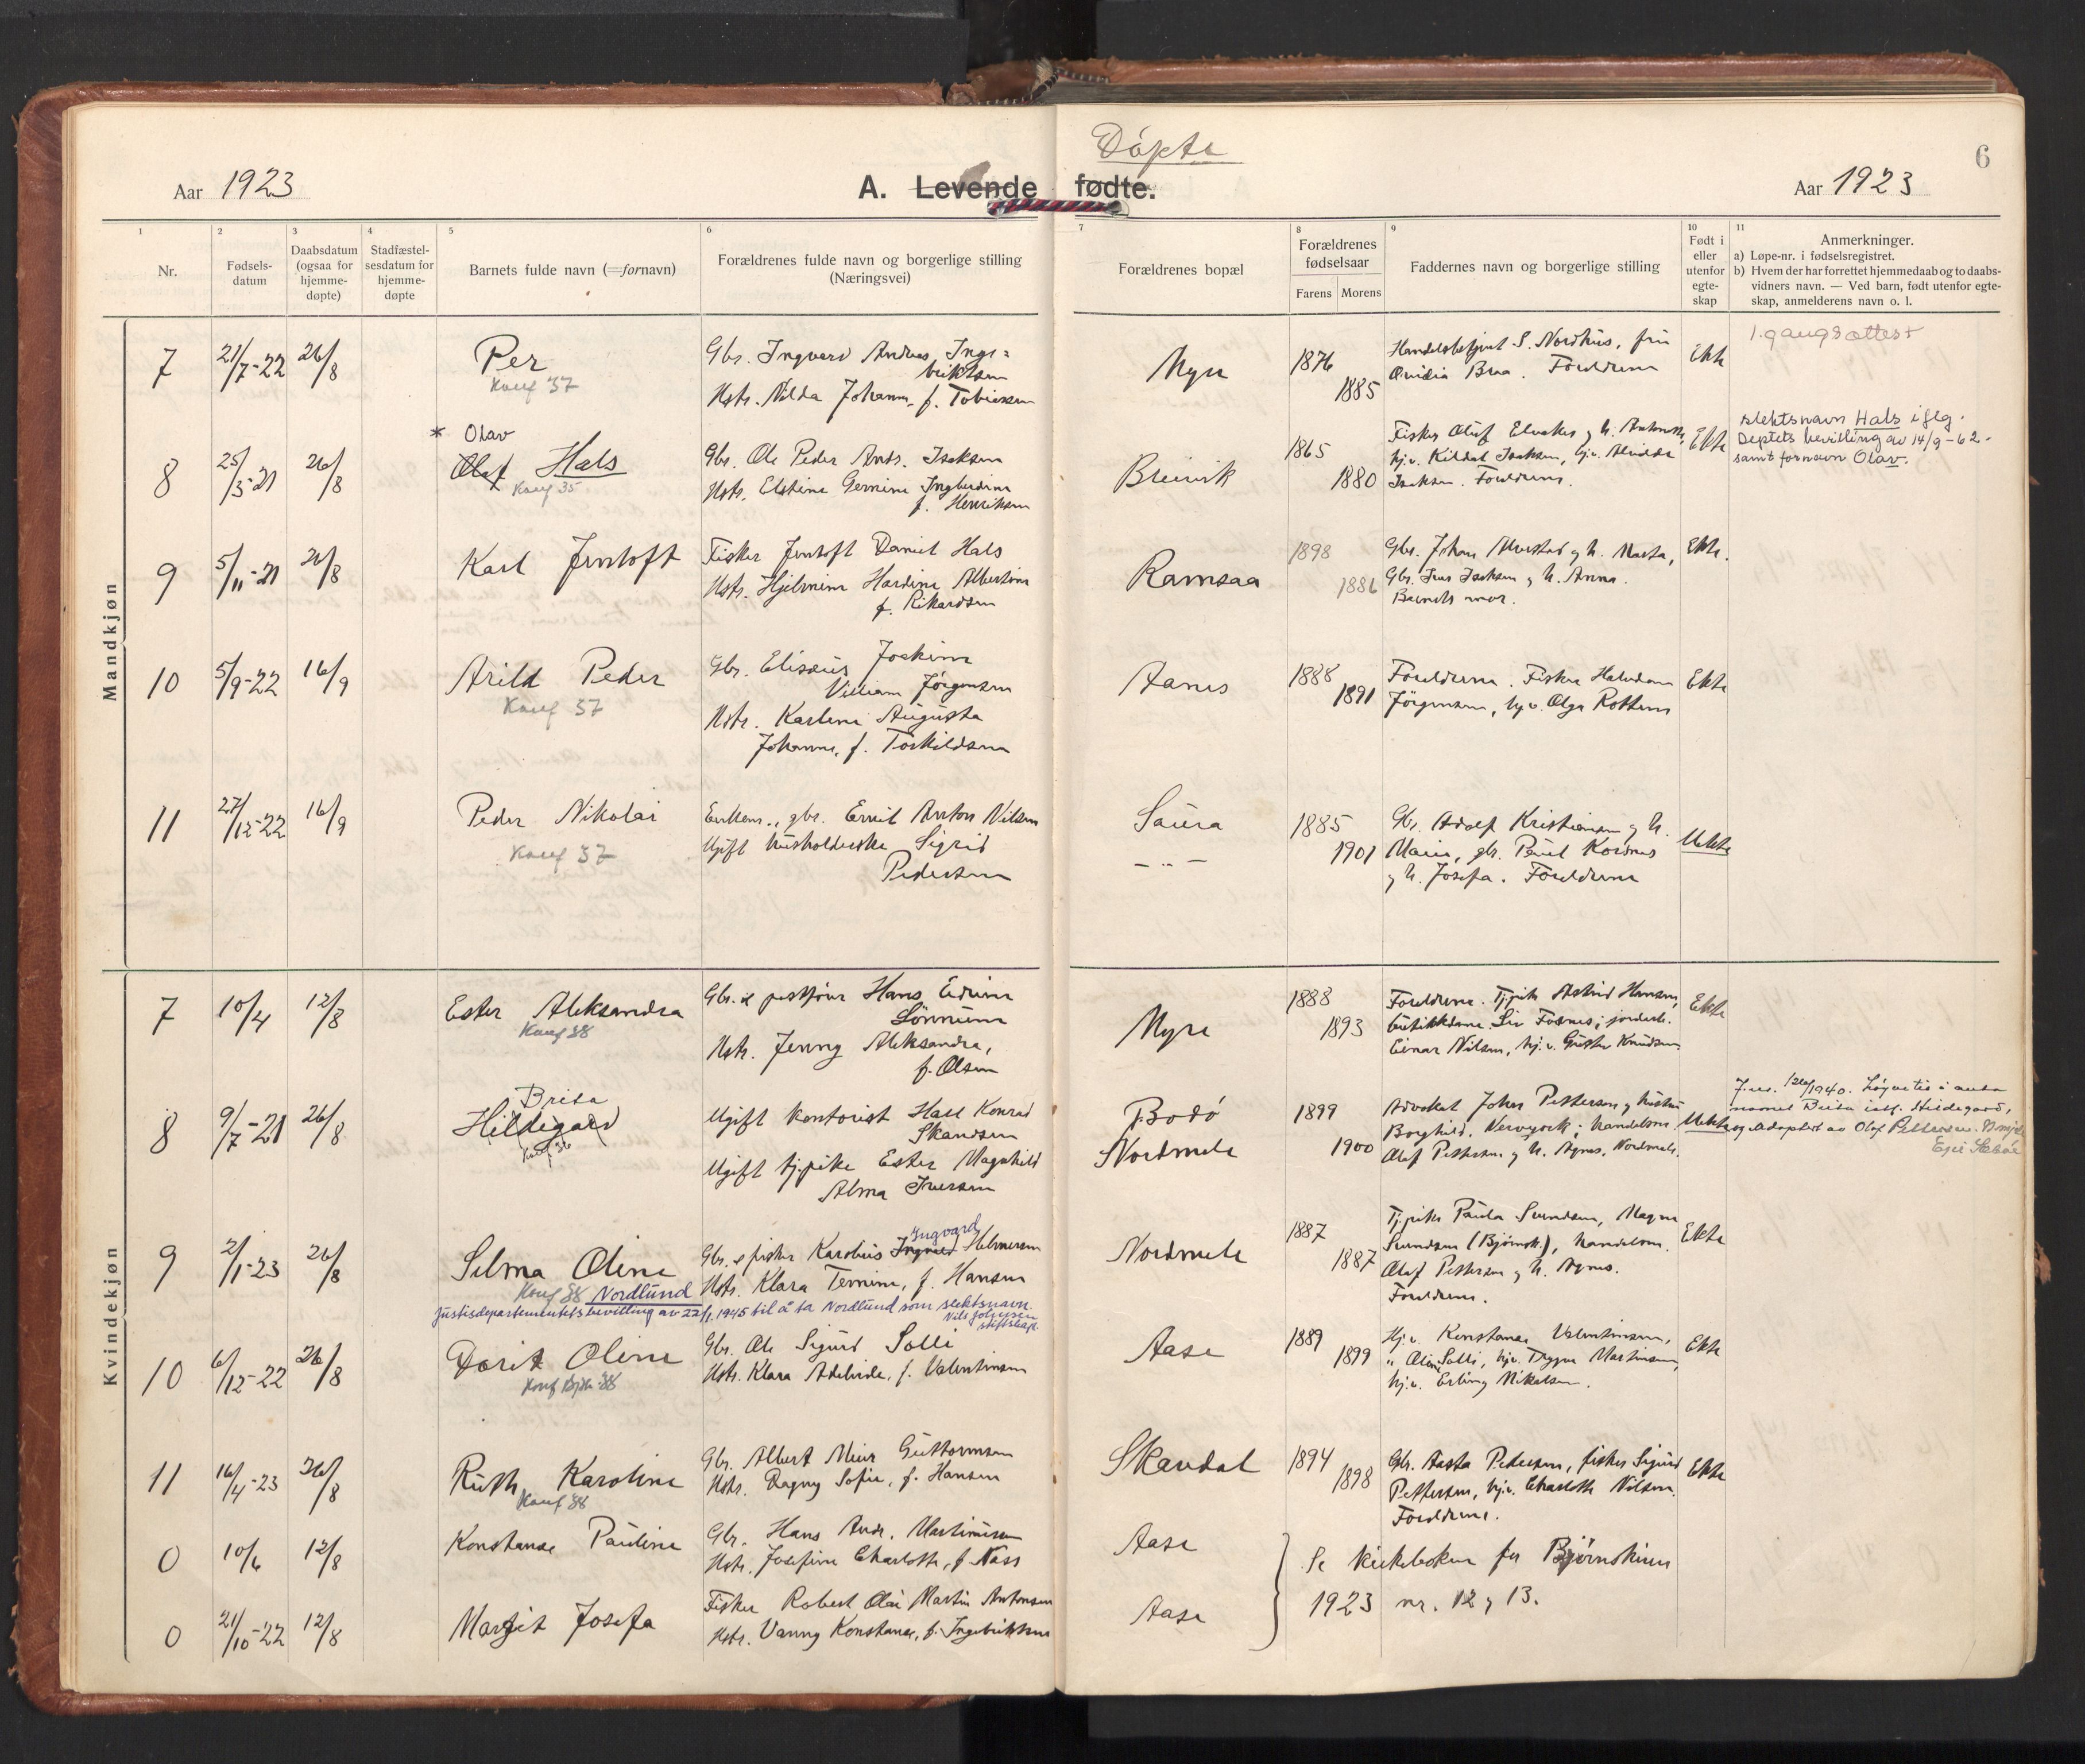 Döpte
6
Aar 1923
A. Levende fødte.
Aar 1923
1
2
3
4
5
6
7
8
9
10
11
Nr.
Fødsels-
datum
Daabsdatum
(ogsaa for
hjemme-
døpte)
Stadfæstel-
sesdatum for
hjemme-
døpte
Barnets fulde navn (=fornavn)
Forældrenes fulde navn og borgerlige stilling
(Næringsvei)
Forældrenes bopæl
Forældrenes
fødselsaar
Farens Morens
Faddernes navn og borgerlige stilling
Født i
eller
utenfor
egte-
skap
Anmerkninger.
a) Løpe-nr. i fødselsregistret.
b) Hvem der har forrettet hjemmedaab og to daabs-
vidners navn. — Ved barn, født utenfor egte-
skap, anmelderens navn o. l.
Mandkjøn
7
21/7-22
26/8
Per
Konf 37
Gbr. Ingvard Andreas Inge=
briktsen
Hstr. Nilda Johanne, f. Tobiassen
Myre
1876
1885
Handelsbetjent S. Nordhus, fru
Ovidia Braa. Foreldrene
Ekte
1. gangsattest
8
25/3-21
26/8
* Olav
Olaf Hals
Konf 35
Gbr. Ole Peder Andr. Isaksen
Hstr. Elstine Gernine Ingberdine
f. Henriksen
Breivik
1865
1880
Fisker Oluf Elvakер g h. Antonette,
hj.v. Kildal Isaksen, hj.v. Alvilde
Isaksen. Foreldrene.
Ekte
slektsnavn Hals iflg.
Deptets bevilling av 14/9-62-
samt fornavn Olav.
9
5/11-21
26/8
Karl Jentoft
Fisker Jentoft Daniel Hals
Hstr. Hjelmine Hardine Albertine
f. Rikardsen
Ramsaa
1898
1886
Gbr. Johan Alvestad g h. Marta,
Gbr. Isak Isaksen g h. Anna.
Barnets mor.
Ekte.
10
5/9-22
16/9
Arild Peder
Konf 37
Gbr. Elisæus Joakim
Villiam Jörgensen
Hstr. Karline Augusta
Johanne, f. Torkildsen
Aanes
1888
1891
Foreldrene. Fisker Halvdan
Jörgensen, hj.v. Olga Rottem
Ekte
11
27/12-22
16/9
Peder Nikolai
Konf 37
Enkem., gbr. Emil Anton Nilsen
Ugift husholderske Sigrid
Pedersen
Saura
— „ —
1885
1901
Gbr. Adolf Kristiansen g h.
Marie, gbr. Peuel Kordnes
g h. Josefa. Foreldrene
Uekte
Kvindekjøn
7
10/4
12/8
Ester Aleksandra
Konf 38
Gbr. & postfører Hans Edvin
Sörnum
Hstr. Jenny Aleksandra,
f. Olsen
Myre
1888
1893
Foreldrene. Tj.pike Astrid Hansen,
butikkdame Liv Fosnes; jorderb.
Einar Nilsen, hj.v. Gustav Knudsen.
Ekte
8
9/7-21
26/8
Brita
Hildegard
Konf 36
Ugift kontorist Hall Konrad
Skandsen
Ugift tj.pike Ester Magnhild
Alma Iversen
Bodö
Nordmela
1899
1900
Advokat Johan Pettersen g hustru
Borghild, Newyork; handelsm.
Olaf Pettersen g h. Agnes, Nordmela.
Uekte
navnet Brita istf. Hildegard,
og adoptert av Olaf Pettersen.
9
2/1-23
26/8
Selma Oline
Konf 38 Nordlund
Ingvard
Gbr. & fisker Karolius Ingvald Helmersen
Hstr. Klara Ternine, f. Hansen
Justisdepartementets bevilling av 22/1.1945 til å ta Nordlund som slektsnavn.
Nils Johnsen
stiftskap.
Nordmela
1887
1887
Tj.pike Paula Svendsen, Magna
Svendsen (Björnsk.), handelsm.
Olaf Pettersen g h. Agnes.
Foreldrene.
Ekte
10
6/12-22
26/8
Dorit Oline
Konf Bjsk 38
Gbr. Ole Sigurd Solli
Hstr. Klara Adelinde, f. Valentinsen
Aase
1889
1899
Hj.v. Konstanse Valentinsen,
„ Oline Solli, hj.v. Trygve Martinsen,
hj.v. Erling Nikolaisen.
Ekte
11
16/4-23
26/8
Ruth Karoline
Konf 38
Gbr. Albert Meier Guttormsen
Hstr. Dagny Sofie, f. Hansen
Skavdal
1894
1898
Gbr. Aasta Pedersen, fisker Sigurd
Pettersen, hj.v. Charlotte Nilsen.
Foreldrene.
Ekte
0
10/6
12/8
Konstanse Pauline
Gbr. Hans Andr. Martinussen
Hstr. Josefine Charlotte, f. Næss
Aase
Se kirkeboken for Björnskinn
0
21/10-22
12/8
Margit Josefa
Fisker Robert Olai Martin Antonsen
Hstr. Vanny Konstanse, f. Ingebriktsen
Aase
1923 nr. 12 g 13.